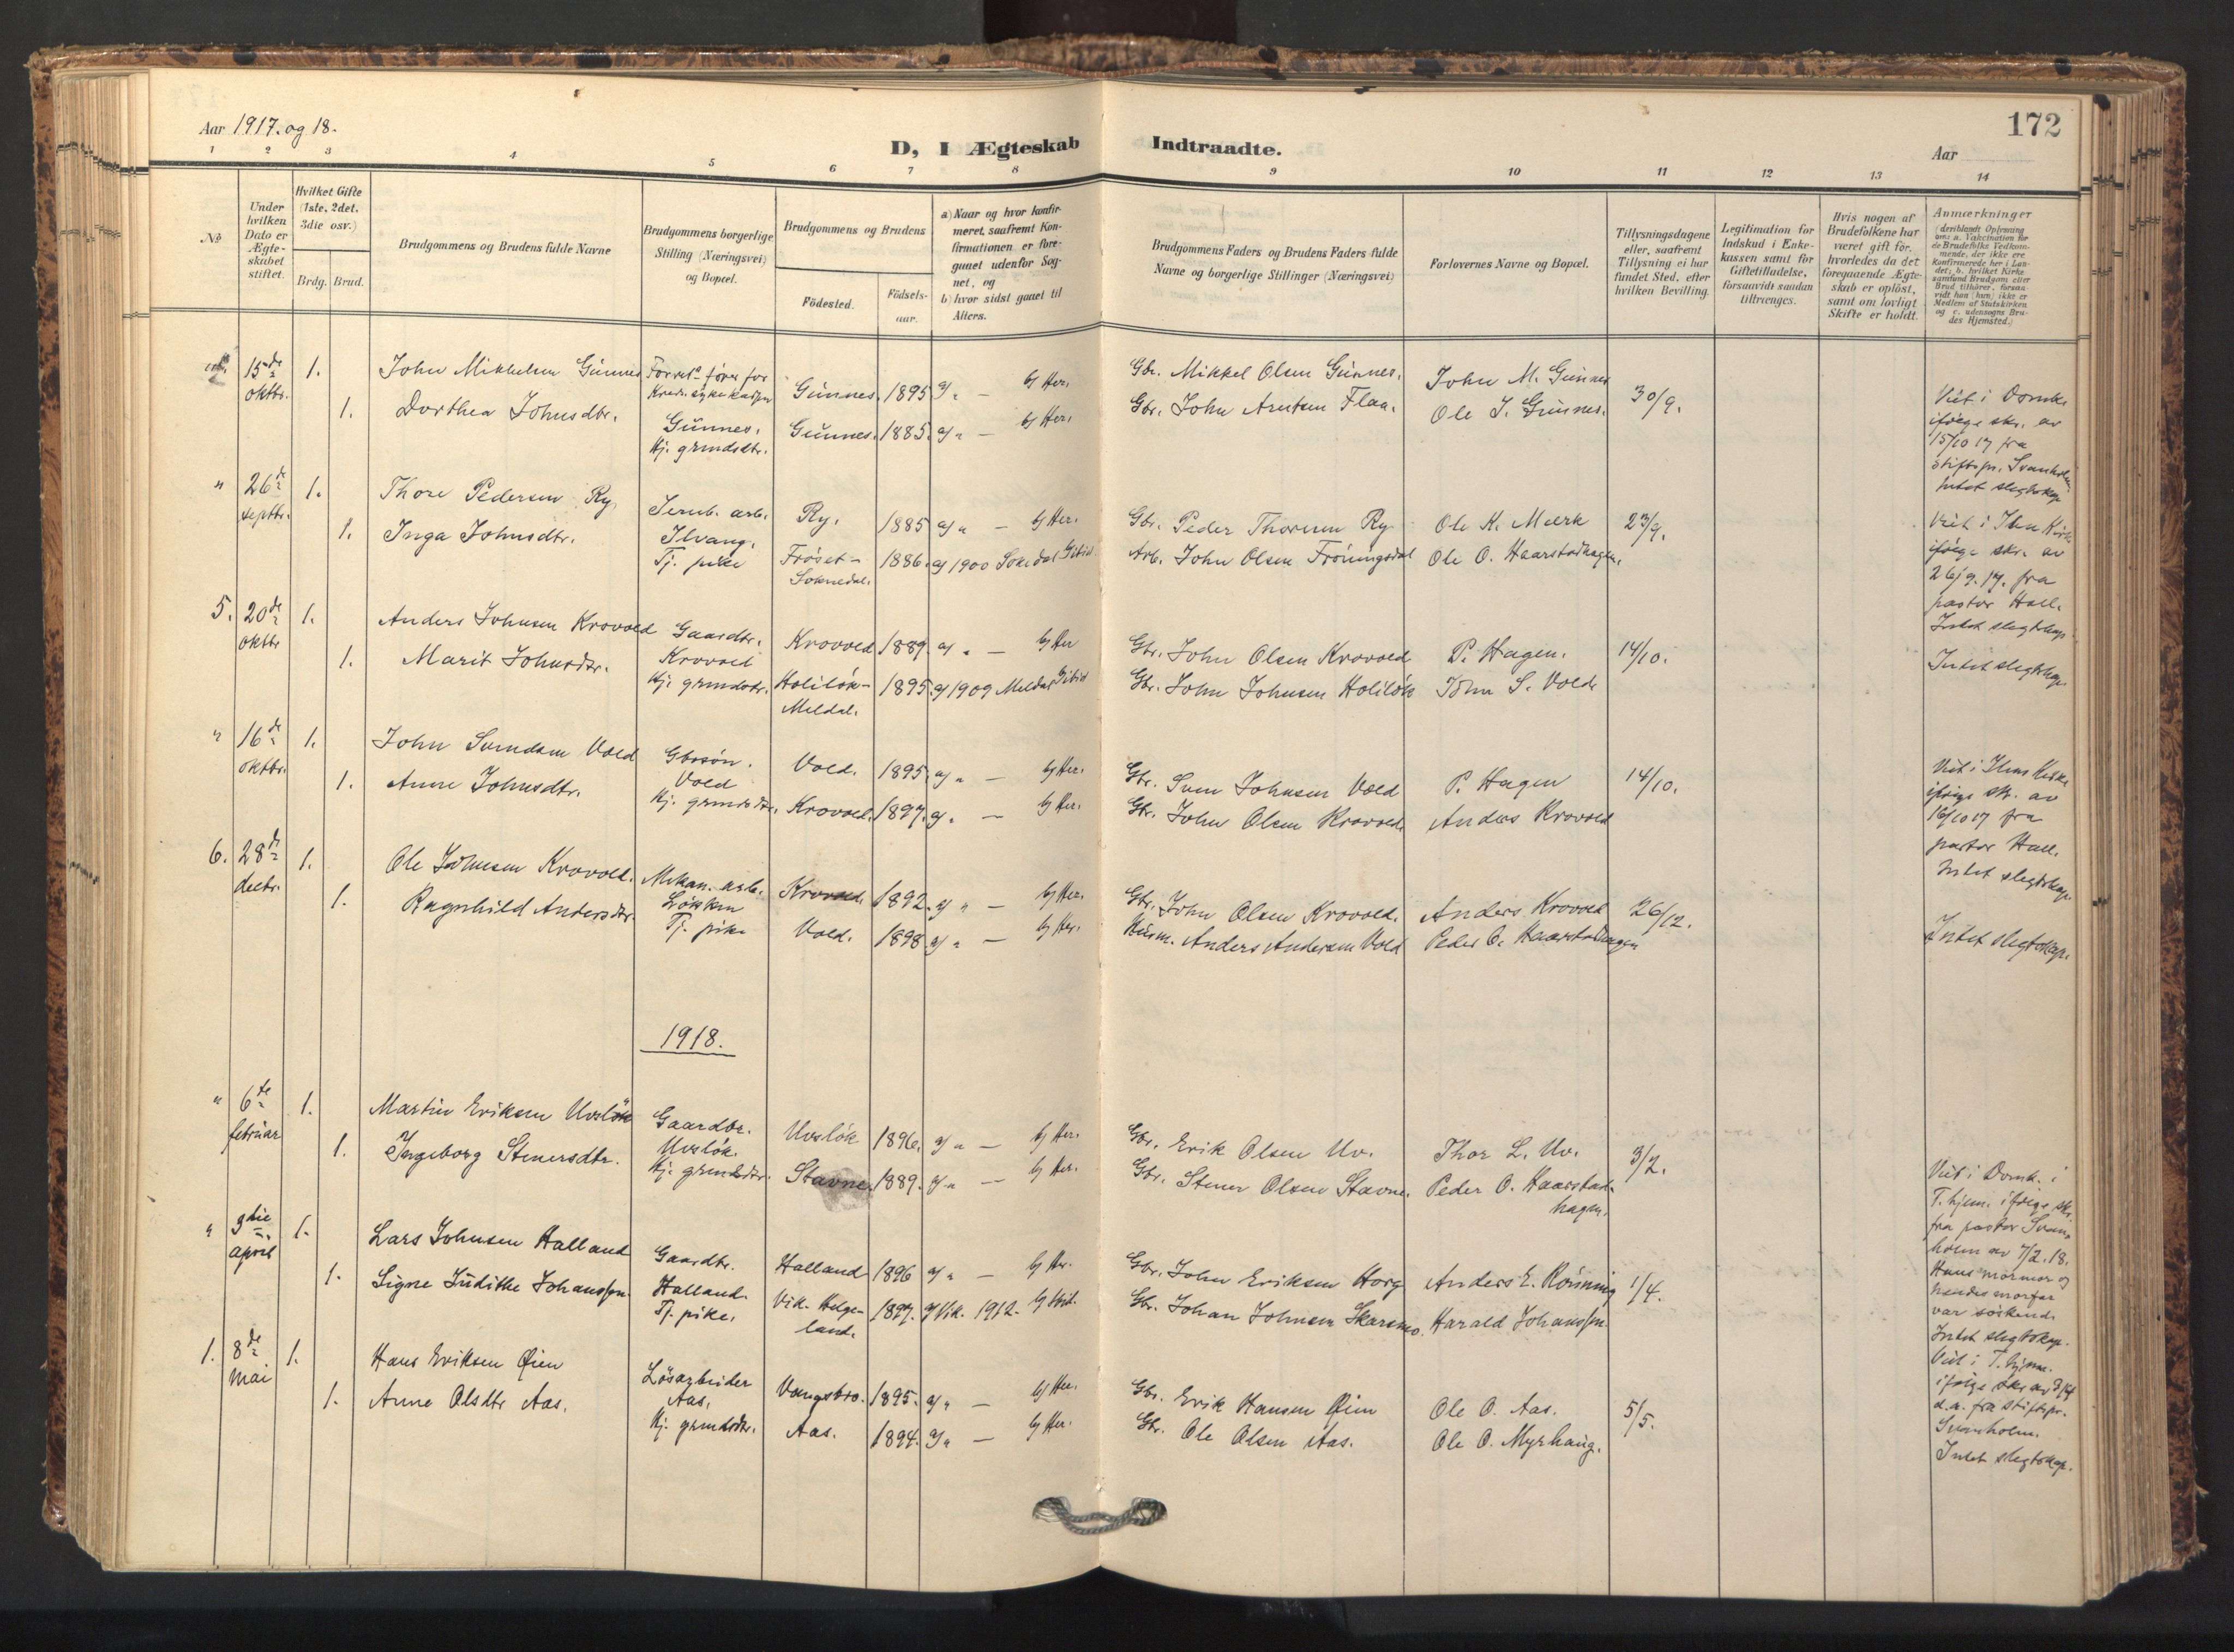 Aar 1917. og 18.
172
D, I Ægteskab Indtraadte.
Aar
1 2 3 4 5 6 7 8 9 10 11 12 13 14
No
Under hvilken Dato er Ægte-skabet stiftet.
Hvilket Gifte (1ste, 2det, 3die osv.)
Brdg. Brud.
Brudgommens og Brudens fulde Navne
Brudgommens borgerlige Stilling (Næringsvei) og Bopæl.
Brudgommens og Brudens
Födested.
Födsels-aar.
a) Naar og hvor konfir-meret, saafremt Kon-firmationen er fore-gaaet udenfor Sog-net, og
b) hvor sidst gaaet til Alters.
Brudgommens Faders og Brudens Faders fulde Navne og borgerlige Stillinger (Næringsvei)
Forlovernes Navne og Bopæl.
Tillysningsdagene eller, saafremt Tillysning ei har fundet Sted, efter hvilken Bevilling.
Legitimation for Indskud i Enke-kassen samt for Giftetilladelse, forsaavidt saadan tiltrænges.
Hvis nogen af Brudefolkene har været gift för, hvorledes da det foregaaende Ægte-skab er oplöst, samt om lovligt Skifte er holdt.
Anmærkninger (deriblandt Oplysning om: a. Vakcination for de Brudefolks Vedkom-mende, der ikke ere konfirmerede her i Lan-det; b. hvilket Kirke-samfund Brudgom eller Brud tilhörer, forsaa-vidt han (hun) ikke er Medlem af Statskirken og c. udensogns Bru-des Hjemsted.)
15de oktbr. 1. John Mikkelsen Günnes Günnes. 1895 a/ " — b/ Her. Gbr. Mikkel Olsen Günnes. John M. Günnes 30/9.
1. Dorthea Johnsdtr. Günnes. Hj. grmdsdtr. Günnes. 1885. a/ " — b/ Her. Gbr. John Arntsen Flaa. Ole J. Günnes.
Viet i Domk. ifölge skr. av 15/10 17 fra stiftspr. Svanholm. Intet slegtskap
" 26de septbr. 1. Thore Pedersen Ry. Jernb. arb. Ilvang. Ry. 1885 a/ " — b/ Her. Gbr. Peder Thoresen Ry Ole K. Mærk 23/9.
1. Inga Johnsdtr. Tj. pike Fröset-Soknedal. 1886. a/ 1900 Soknedal b/ ibid. Arb. John Olsen Fröningsdal Ole O. Haarstadhagen.
Viet i Ilen Kirke ifölge skr. av 26/9. 17. fra pastor Hall. Intet slegtskap.
5. 20de oktbr 1. Anders Johnsen Krovold Gaardbr. Krovold Krovold 1889. a/ " — b/ Her Gbr. John Olsen Krovold P. Hagen. 14/10.
1. Marit Johnsdtr. Hj. grmdsdtr. Holilök-Meldal. 1895. a/ 1909 Meldal b/ ibid Gbr. John Johnsen Holilök John S. Vold.
Intet slegtskap.
" 16de oktbr. 1. John Svendsen Vold Gbrsön. Vold Vold. 1895. a/ " — b/ Her. Gbr. Sven Johnsen Vold P. Hagen 14/10.
1. Anne Johnsdtr. Hj. grmdsdtr. Krovold. 1897. a/ " — b/ Her. Gbr. John Olsen Krovold. Anders Krovold
Viet i Ilens Kirke ifölge skr. av 16/10 17 fra pastor Hall. Intet slegtskap
6. 28de decbr. 1. Ole Johnsen Krovold. Mekan. arb. Lökken Krovold. 1892. a/ " — b/ Her. Gbr. John Olsen Krovold. Anders Krovold 26/12.
1. Ragnhild Andersdtr. Tj. pike Vold. 1898 a/ " — b/ Her. Husm. Anders Andersen Vold Peder O. Haarstadhagen
Intet slegtskap.
1918.
" 6te februar 1. Martin Eriksen Uvslök Gaardbr. Uvslök. Uvslök 1896. a/ " — b/ Her. Gbr. Erik Olsen Uv. Thor L. Uv. 3/2.
1. Ingeborg Stenersdtr. Hj. grmdsdtr. Stavne. 1889. a/ " — b/ Her. Gbr. Stener Olsen Stavne. Peder O. Haarstad-hagen.
Viet i Domk. i T.hjem. ifölge skr. fra pastor Svanholm av 7/2. 18. Hans mormor og hendes morfar var söskend.
" 3die april 1. Lars Johnsen Halland Gaardbr. Halland. Halland 1896 a/ " — b/ Her. Gbr. John Eriksen Horg Anders E. Rönning 1/4.
1. Signe Judithe Johanssen Tj. pike. Vik. Helge-land. 1897. a/ Vik. 1912. b/ ibid. Gbr. Johan Johnsen Skarsmo. Harald Johanssen
Intet slegtskap. Viet i T.hjem. ifölge skr av 3/4 d.a. fra stiftspr. Svanholm.
1. 8de mai 1. Hans Eriksen Øien Lösarbeider Aas. Vangsbro. 1895. a/ " — b/ Her. Gbr. Erik Hansen Øien Ole O. Aas. 5/5.
1. Anne Olsdtr Aas. Hj. grmdsdtr. Aas. 1894. a/ " — b/ Her. Gbr. Ole Olsen Aas. Ole O. Myrhaug.
Intet slegtskap.